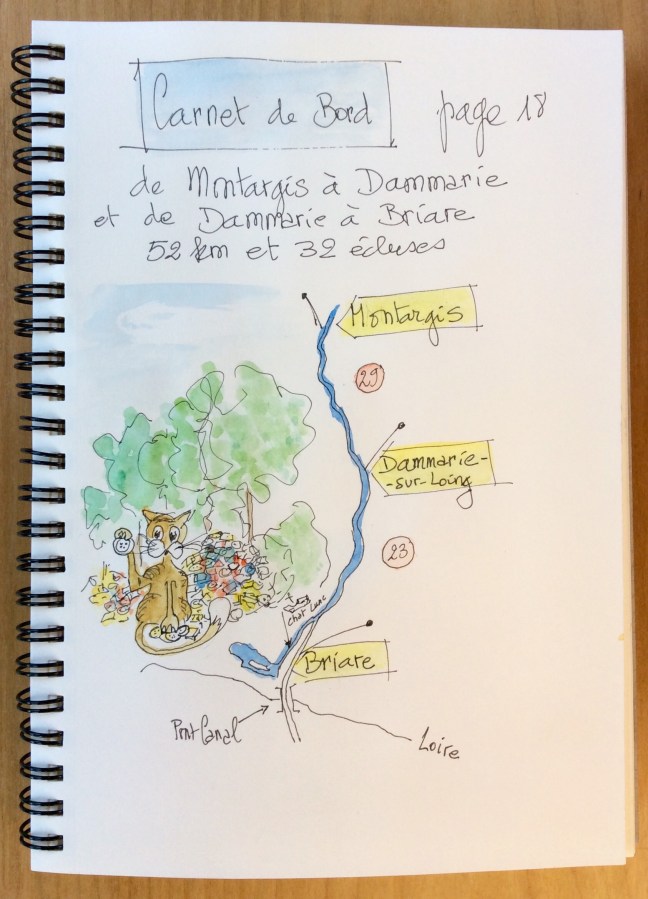 Carnet de Bord page 18
de Montargis à Dammarie
et de Dammarie à Briare
52 km et 32 écluses
Montargis
29
Dammarie-
-sur-Loing
23
chat Lune
Briare
Pont Canal
Loire